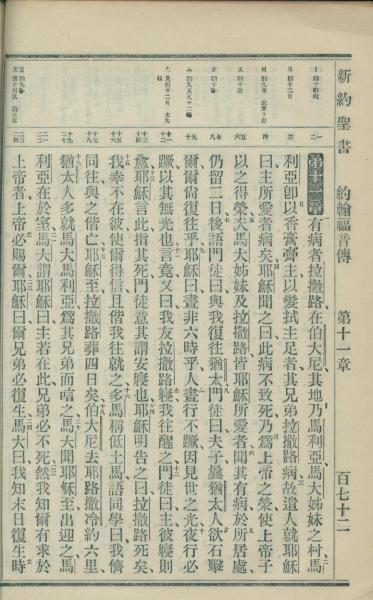 新約聖書 約翰福音傳 第十一章 百七十二
第十一章 有病者拉撒路在伯大尼其地乃馬利亞馬大姊妹之村馬
利亞卽以香膏膏主以髮拭主足者其兄弟拉撒路病故遣人就耶穌
曰主所愛者病矣耶穌聞之曰此病不致死乃爲上帝之榮使上帝子
以之得榮夫馬大姊妹及拉撒路皆耶穌所愛者聞其有病於所居處
仍留二日後語門徒曰與我復往猶太門徒曰夫子曩猶太人欲石擊
爾爾尚復往乎耶穌曰晝非六時乎人晝行不蹶因見世之光夜行必
蹶以其無光也言竟又曰我友拉撒路寢我往醒之門徒曰主彼寢則
愈耶穌言此指其死門徒意其謂安寢也耶穌明告之曰拉撒路死矣
我幸不在彼使爾得信且偕我往就之多馬稱低土馬語同學曰我儕
同往與之偕亡耶穌至拉撒路葬四日矣伯大尼去耶路撒冷約六里
猶太人多就馬大馬利亞爲其兄弟而唁之馬大聞耶穌至出迎之馬
利亞在於室馬大謂耶穌曰主若在此兄弟必不死然我知爾有求於
上帝者上帝必賜爾耶穌曰爾兄弟必復生馬大曰我知末日復生時